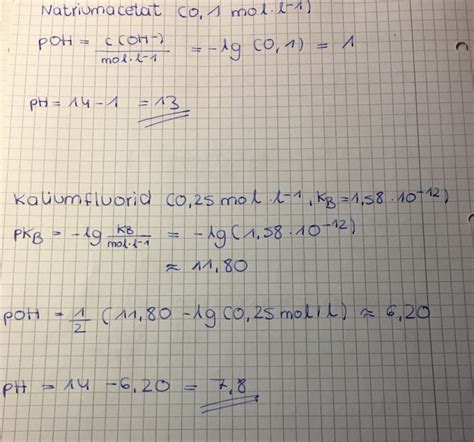 Natriumacetat (0,1 mol·l-1)
pOH = c(OH-) / mol·l-1 = -lg (0,1) = 1
pH = 14 - 1 = 13
Kaliumfluorid (0,25 mol·l-1, KB = 1,58·10-12)
PKB = -lg KB / mol·l-1 = -lg (1,58·10-12)
≈ 11,80
pOH = 1/2 (11,80 - lg (0,25 mol/l) ≈ 6,20
pH = 14 - 6,20 = 7,8